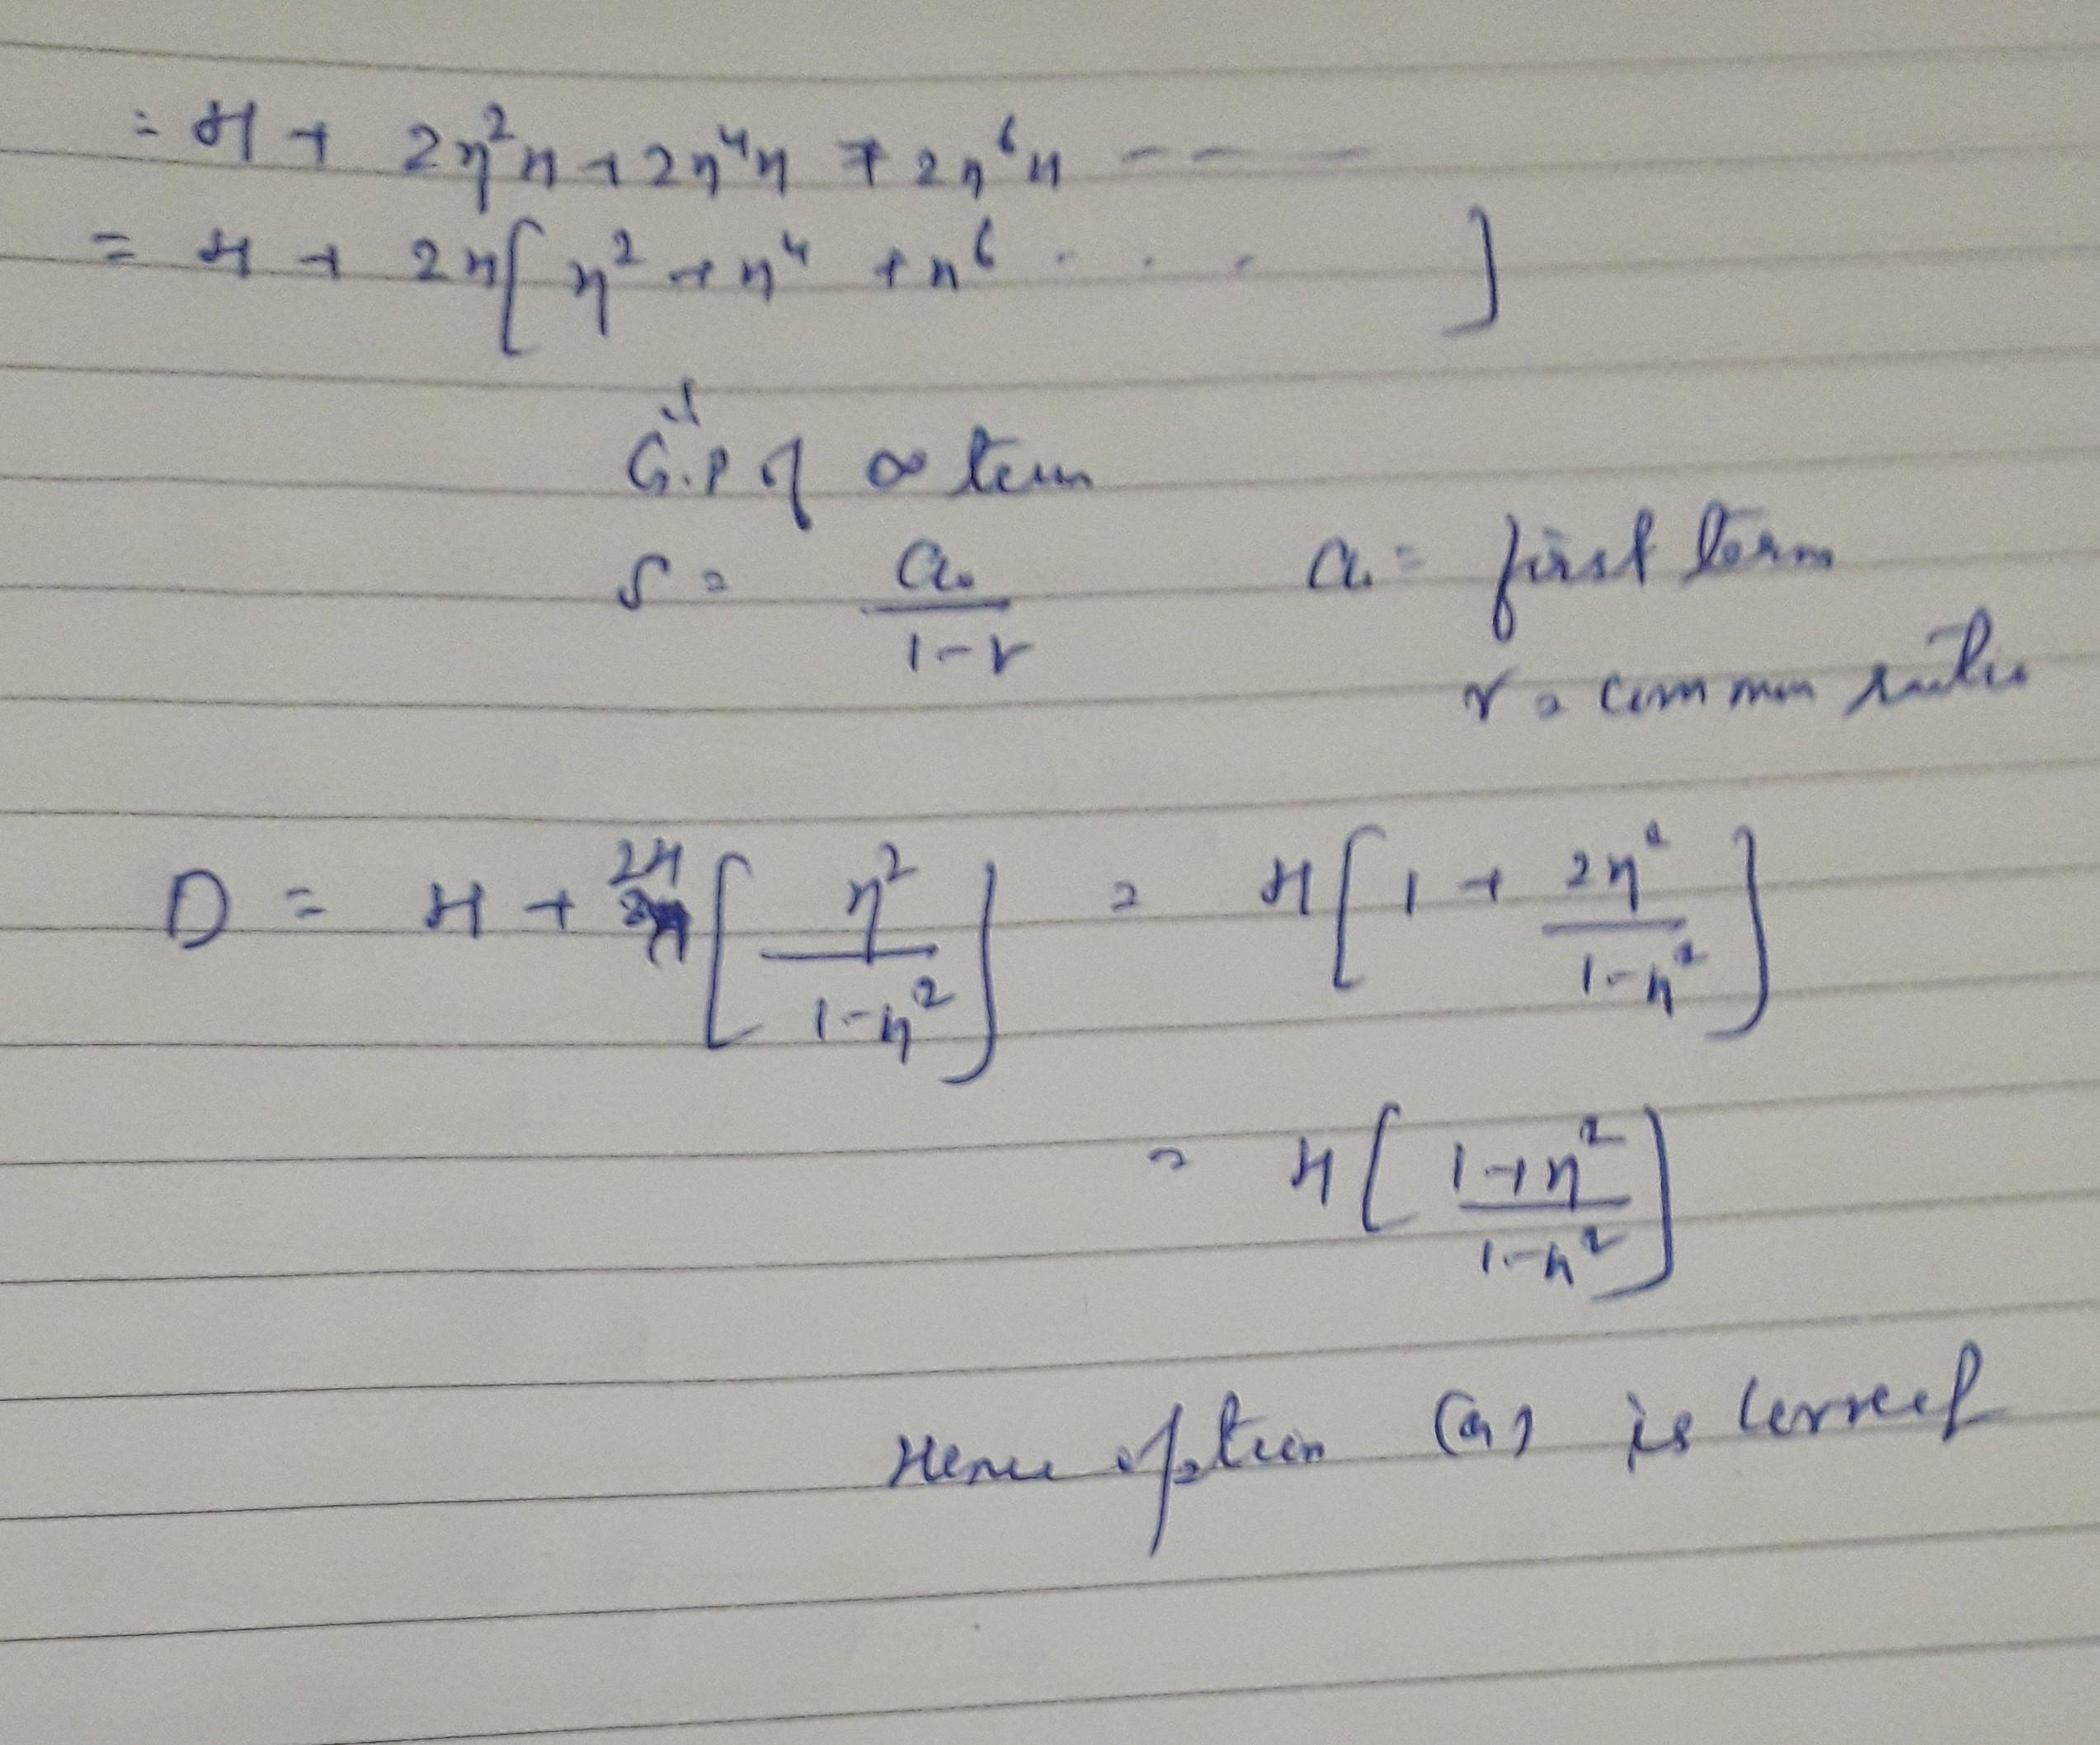 = H + 2η²H + 2η⁴H + 2η⁶H - - -
= H + 2H[η² + η⁴ + η⁶ . . . ]
G.P of ∞ term
S = a/(1-r)    a = first term
r = common ratio
D = H + 2H[η²/(1-η²)] = H[1 + 2η²/(1-η²)]
= H[(1+η²)/(1-η²)]
Hence option (a) is correct